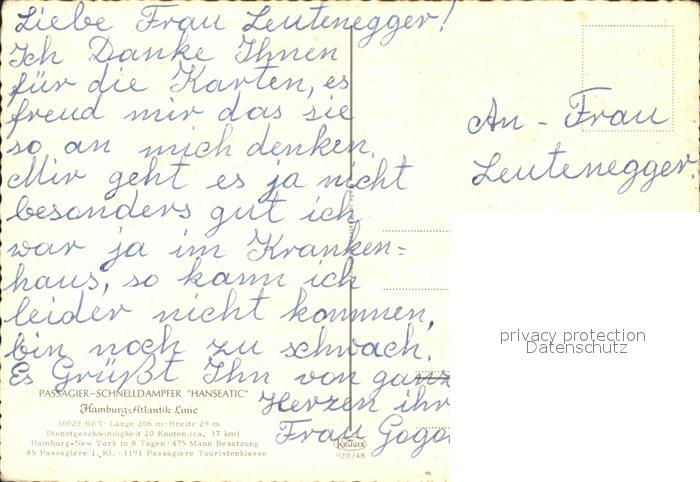 Liebe Frau Leutenegger!
Ich Danke Ihnen
für die Karten, es
freud mir das sie
so an mich denken.
Mir geht es ja nicht
besonders gut ich
war ja im Kranken=
haus, so kann ich
leider nicht kommen,
bin noch zu schwach.
Es Grüßt Ihn von ganz
Herzen ihr
Frau Gogo
An - Frau
Leutenegger.
privacy protection
Datenschutz
PASSAGIER-SCHNELLDAMPFER "HANSEATIC"
Hamburg-Atlantik Linie
30029 BRT · Länge 206 m · Breite 29 m
Dienstgeschwindigkeit 20 Knoten (ca. 37 km)
Hamburg-New York in 8 Tagen · 475 Mann Besatzung
85 Passagiere 1. Kl. · 1191 Passagiere Touristenklasse
KRÜGER
920/48